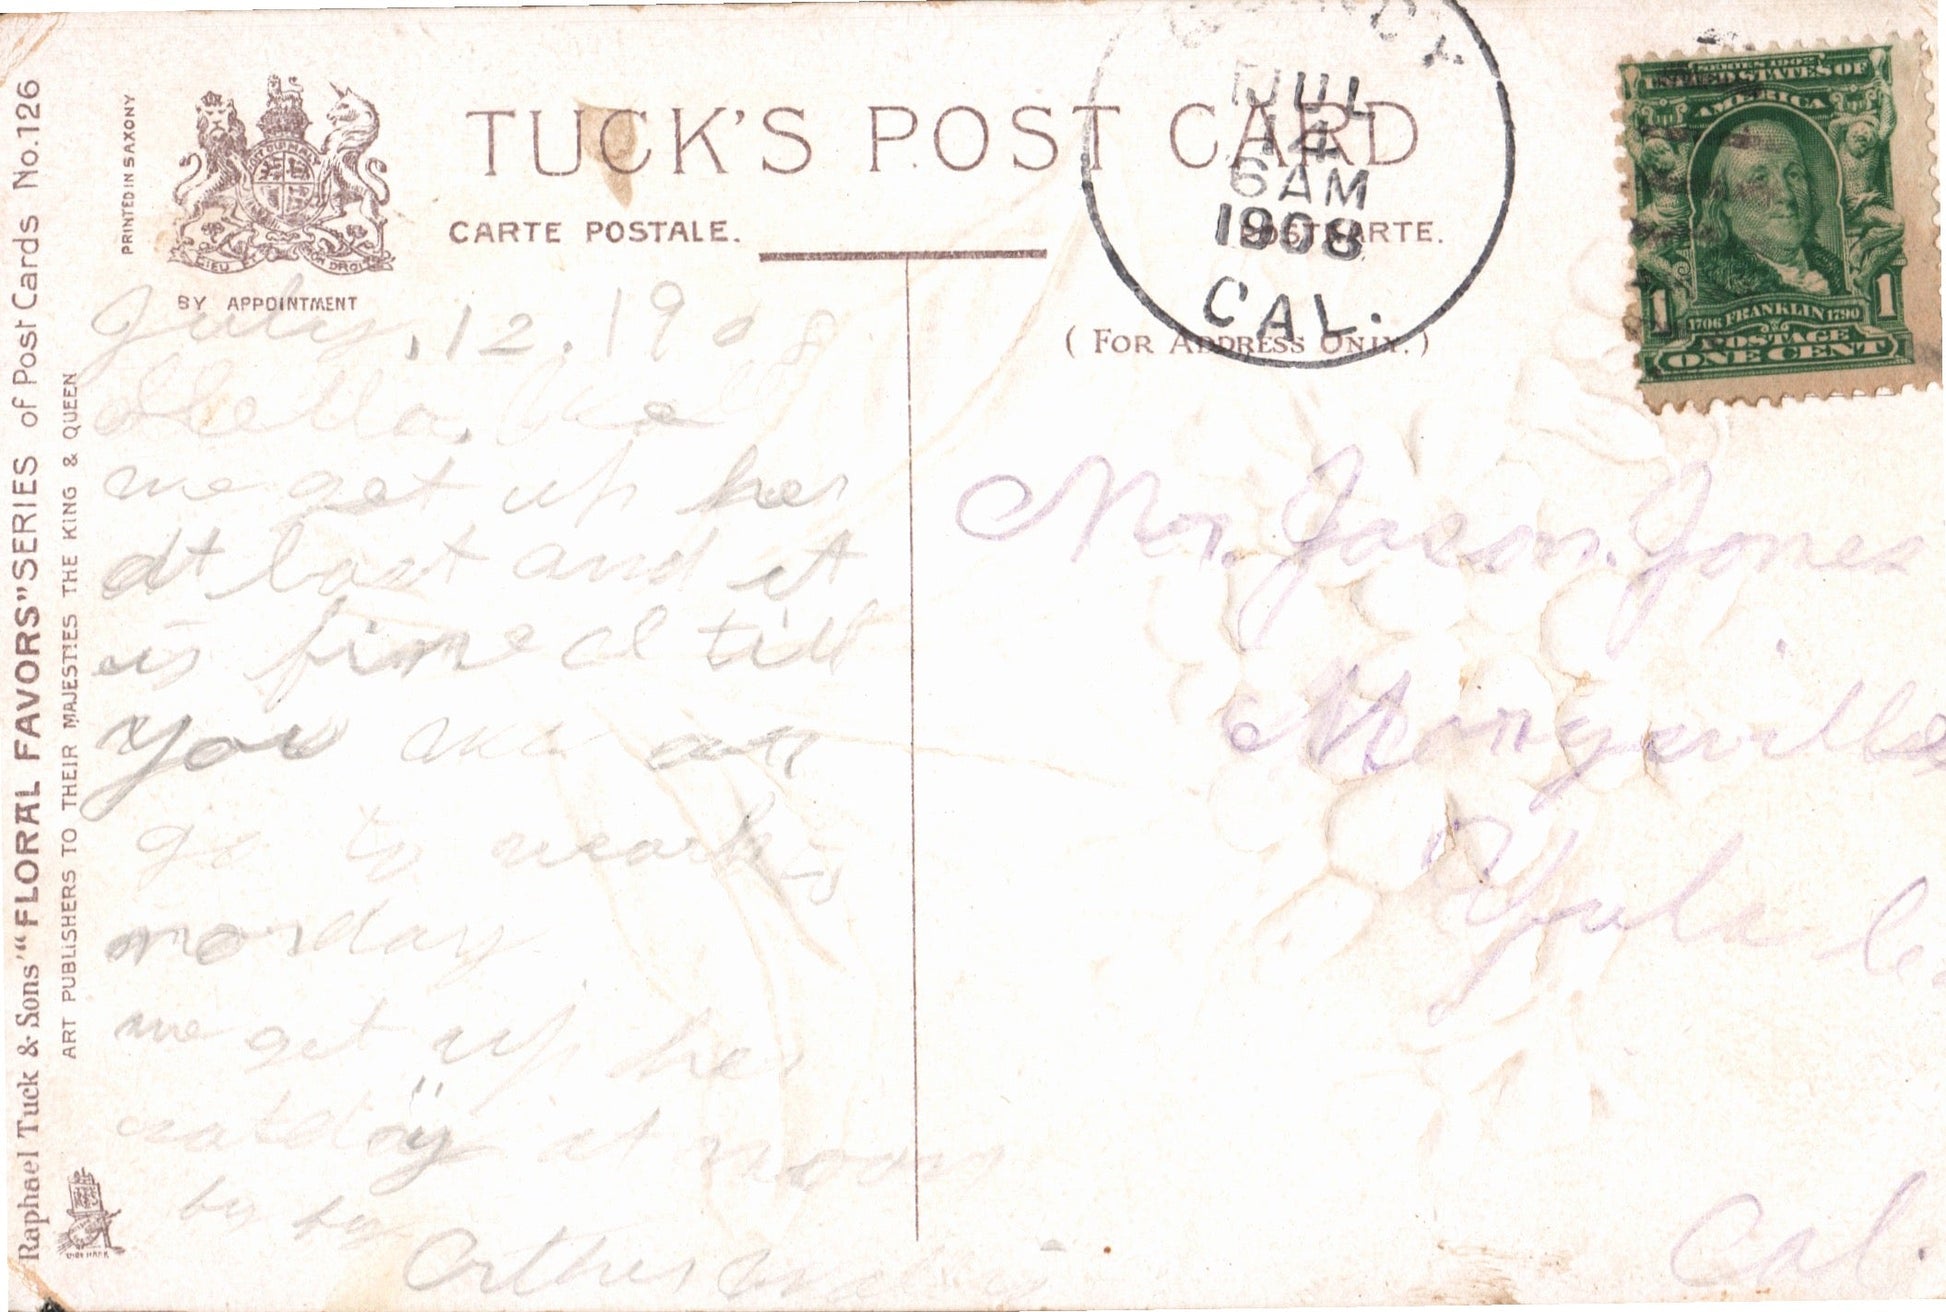 Raphael Tuck & Sons' "FLORAL FAVORS" SERIES of Post Cards No. 126
ART PUBLISHERS TO THEIR MAJESTIES THE KING & QUEEN
PRINTED IN SAXONY
DIEU MON DROIT
BY APPOINTMENT
TUCK'S POST CARD
CARTE POSTALE.
POSTKARTE.
(FOR ADDRESS ONLY.)
JUL
14
6 AM
1908
CAL.
SERIES 1902
UNITED STATES OF
AMERICA
1 1
1706 FRANKLIN 1790
POSTAGE
ONE CENT
July, 12, 1908
Hello,
me get up her
at last and it
is fine I till
you
go to work
monday
me get up her
at noon
by by
Mr. Jason. Jones
Marysville
Yuba
Cal.